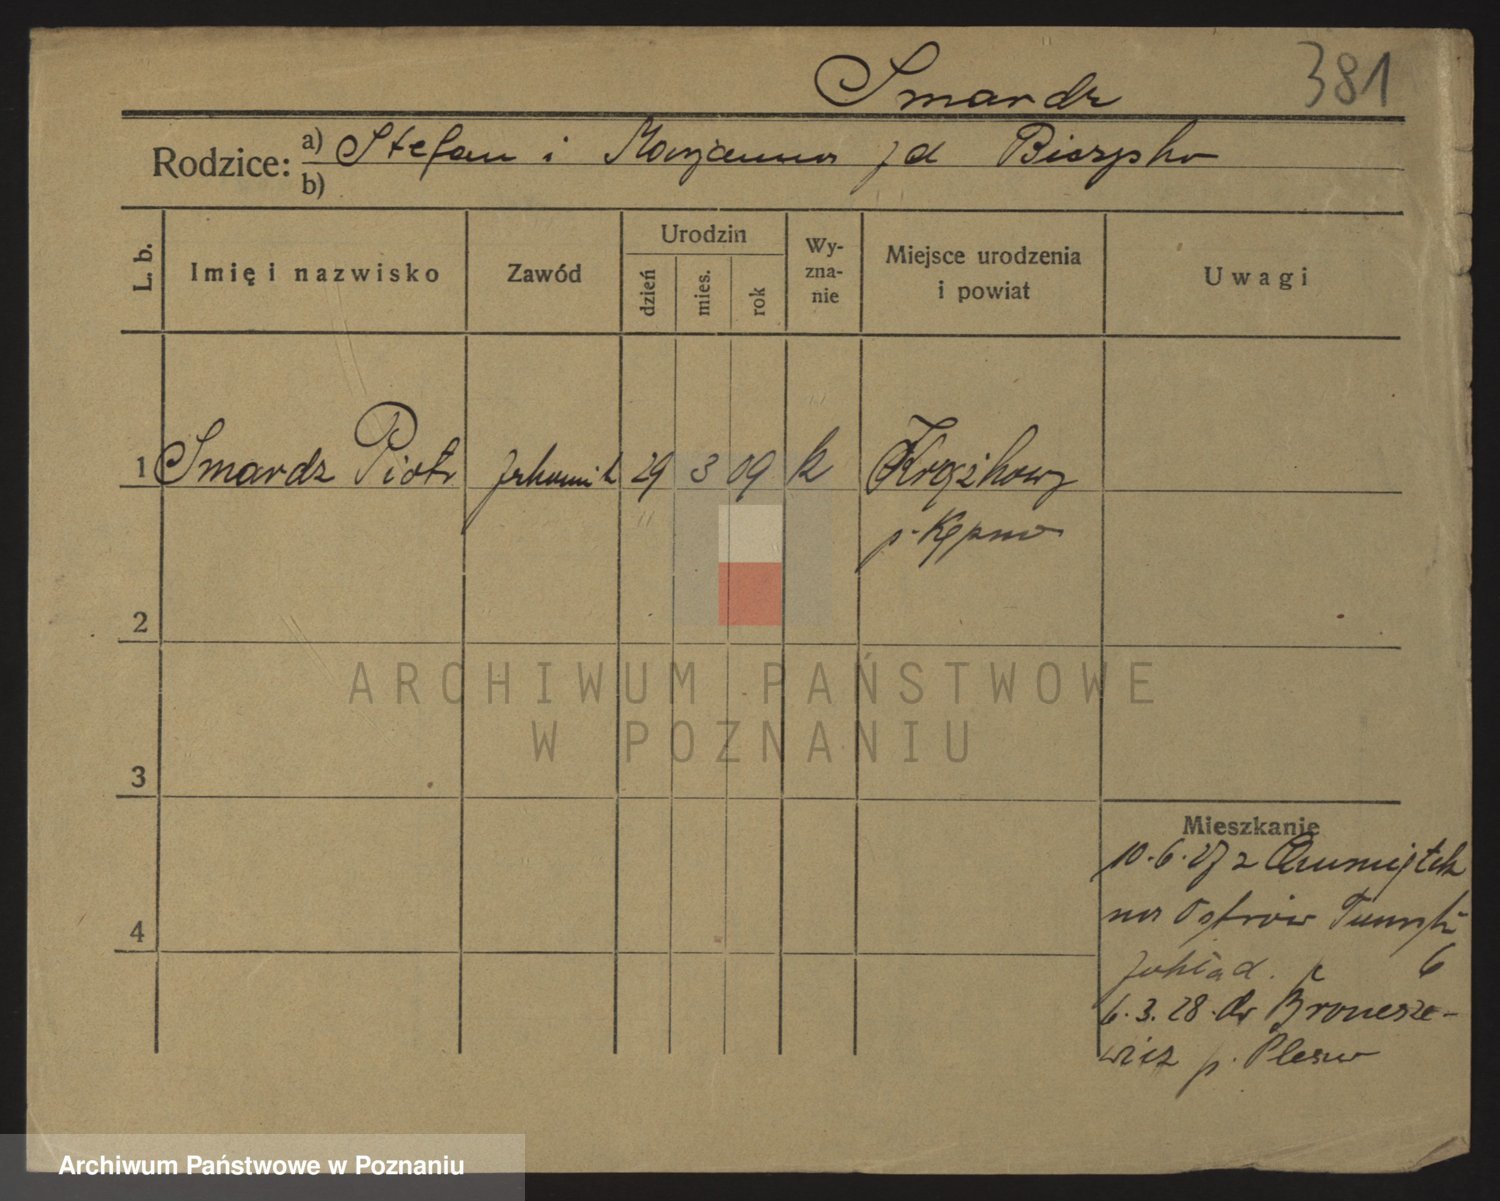 381
Smardz
Rodzice: a) Stefan i Marjanna
b)
L. b.
Imię i nazwisko
Zawód
Urodzin
dzień
mies.
rok
Wy-
zna-
nie
Miejsce urodzenia
i powiat
Uwagi
1 Smardz Piotr 29 3 09 k
p. Kępno
2
3
4
Mieszkanie
10.6.27 z
na Ostrów
6
6.3.28. do Bronisze-
wicz p. Plesew
ARCHIWUM PAŃSTWOWE
W POZNANIU
Archiwum Państwowe w Poznaniu